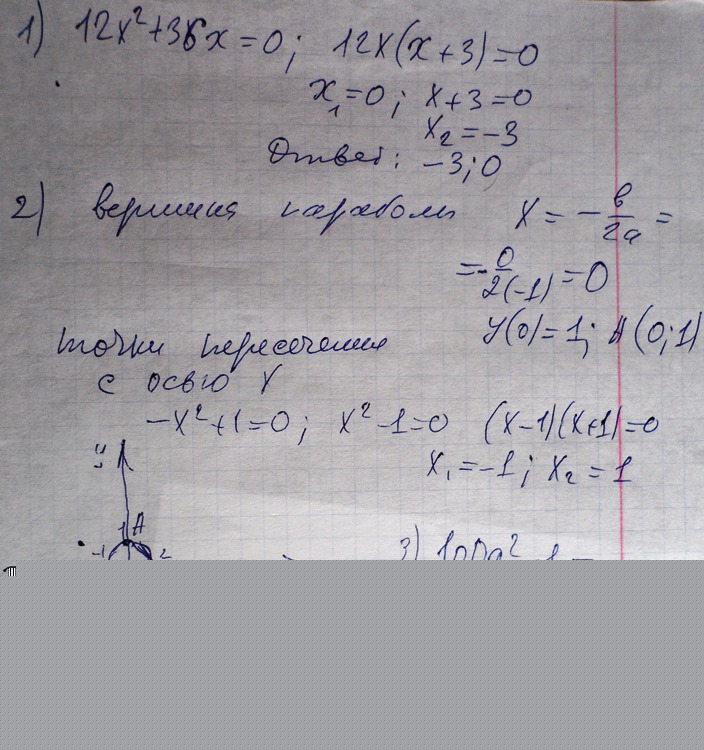 1) 12x²+36x=0; 12x(x+3)=0
x₁=0; x+3=0
x₂=-3
Ответ: -3;0
2) вершина параболы x = -в/2a =
=-0/2(-1)=0
y(0)=1; A(0;1)
точки пересечения
с осью X
-x²+1=0; x²-1=0 (x-1)(x+1)=0
x₁=-1; x₂=1
y
1 A
-1
3) 100a²